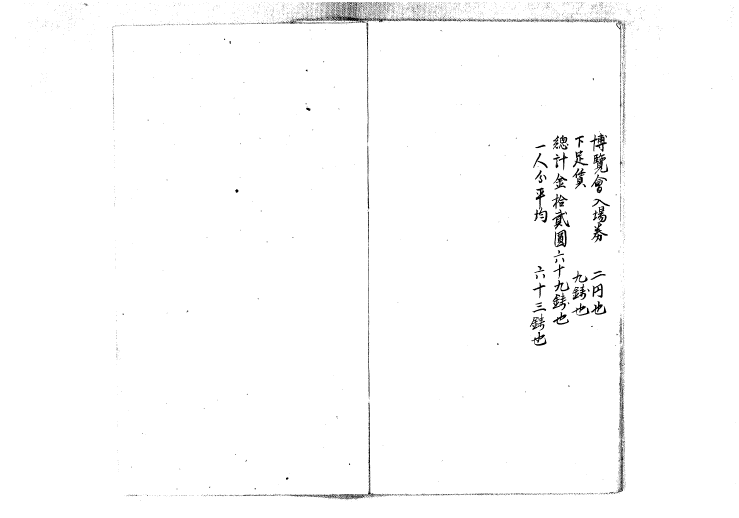 博覽會入場券 二円也
下足賃 九錢也
總計金拾貳圓六十九錢也
一人分平均 六十三錢也